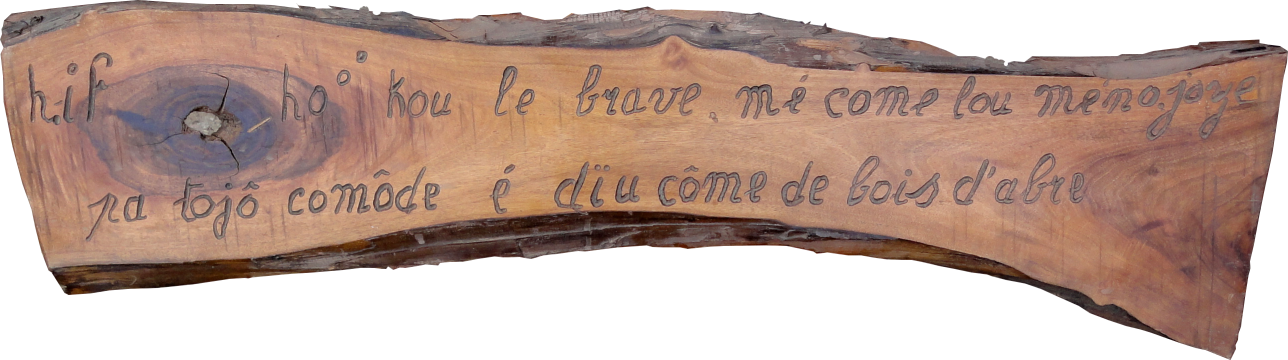 hif ho° kou le brave, mé come lou menajoze
pa tojô comôde é dïu côme de bois d'abre